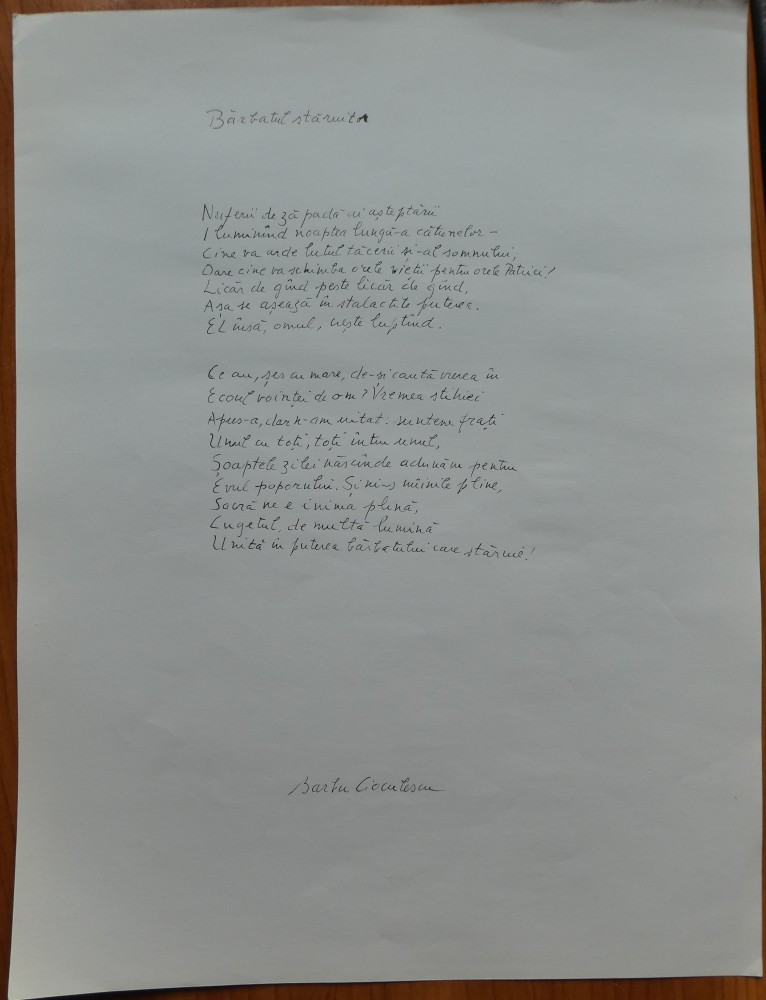 Bărbatul stăruitor
Nuferii de zăpadă ai așteptării
Iluminînd noaptea lungă-a cătunelor –
Cine va arde lutul tăcerii și-al somnului,
Oare cine va schimba orele vieții pentru orele Patriei!
Licăr de gînd peste licăr de gînd,
Așa se așează în stalactite puterea.
El însă, omul, crește luptînd.
Ce au, șes cu mare, de-și caută vrerea în
Ecoul voinței de om? Vremea stihiei
Apus-a, dar n-am uitat: suntem frați
Unul cu toți, toți întru unul,
Șoaptele zilei născînde adunăm pentru
Evul poporului. Și ni-s mîinile pline,
Sacră ne e inima plină,
Cugetul, de multă lumină
Unită în puterea bărbatului care stăruie!
Barbu Cioculescu